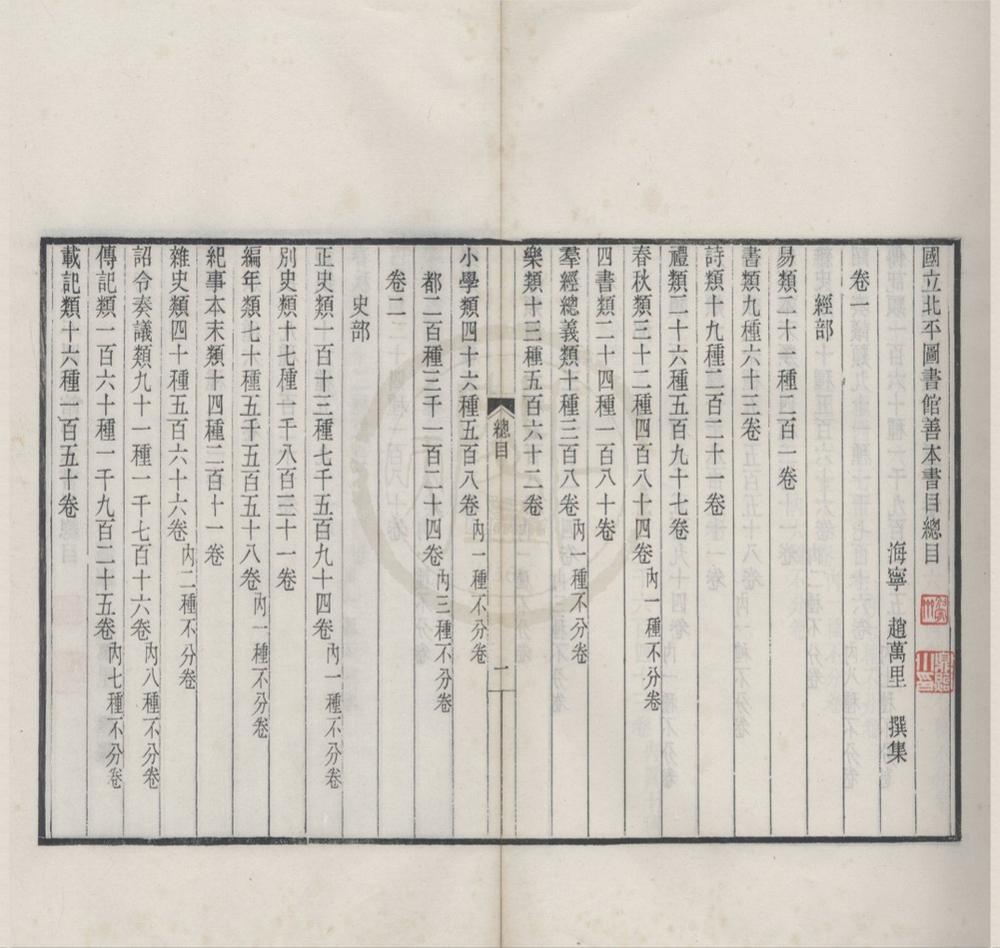 國立北平圖書館善本書目總目
海寧 趙萬里 撰集
卷一
經部
易類二十一種二百一卷
書類九種六十三卷
詩類十九種二百二十一卷
禮類二十六種五百九十七卷
春秋類三十二種四百八十四卷內一種不分卷
四書類二十四種一百八十卷
羣經總義類十種三百八卷內一種不分卷
樂類十三種五百六十二卷
總目
一
小學類四十六種五百八卷內一種不分卷
都二百種三千一百二十四卷內三種不分卷
卷二
史部
正史類一百十三種七千五百九十四卷內一種不分卷
別史類十七種一千八百三十一卷
編年類七十種五千五百五十八卷內一種不分卷
紀事本末類十四種二百十一卷
雜史類四十種五百六十六卷內二種不分卷
詔令奏議類九十一種一千七百十六卷內八種不分卷
傳記類一百六十種一千九百二十五卷內七種不分卷
載記類十六種一百五十卷